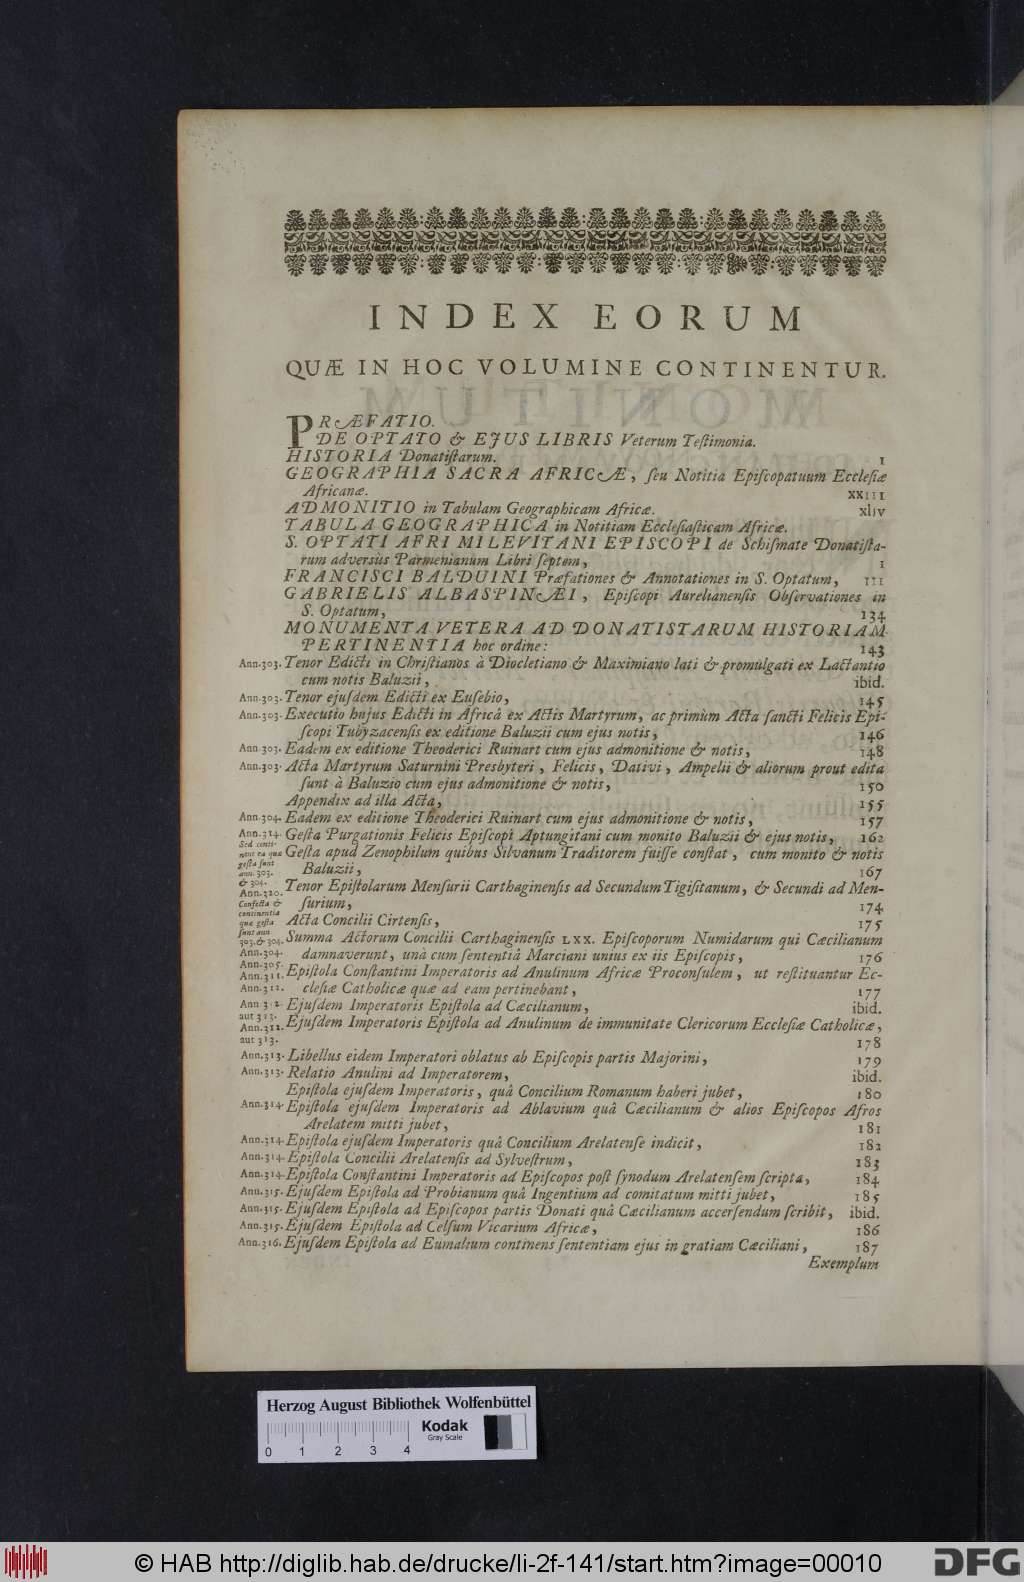 INDEX EORUM
QUÆ IN HOC VOLUMINE CONTINENTUR.
PRÆFATIO.
DE OPTATO & EJUS LIBRIS Veterum Teſtimonia.
HISTORIA Donatiſtarum. 1
GEOGRAPHIA SACRA AFRICÆ, ſeu Notitia Epiſcopatuum Eccleſiæ
Africanæ. xxiii
ADMONITIO in Tabulam Geographicam Africæ. xliv
TABULA GEOGRAPHICA in Notitiam Eccleſiaſticam Africæ.
S. OPTATI AFRI MILEVITANI EPISCOPI de Schiſmate Donatiſta-
rum adversùs Parmenianum Libri ſeptem, 1
FRANCISCI BALDUINI Præfationes & Annotationes in S. Optatum, 111
GABRIELIS ALBASPINÆI, Epiſcopi Aurelianenſis Obſervationes in
S. Optatum, 134
MONUMENTA VETERA AD DONATISTARUM HISTORIAM
PERTINENTIA hoc ordine: 143
Ann.303. Tenor Edicti in Chriſtianos à Diocletiano & Maximiano lati & promulgati ex Lactantio
cum notis Baluzii, ibid.
Ann.303. Tenor ejuſdem Edicti ex Euſebio, 145
Ann.303. Executio hujus Edicti in Africâ ex Actis Martyrum, ac primùm Acta ſancti Felicis Epi-
ſcopi Tubyzacenſis ex editione Baluzii cum ejus notis, 146
Ann.303. Eadem ex editione Theoderici Ruinart cum ejus admonitione & notis, 148
Ann.303. Acta Martyrum Saturnini Presbyteri, Felicis, Dativi, Ampelii & aliorum prout edita
ſunt à Baluzio cum ejus admonitione & notis, 150
Appendix ad illa Acta, 155
Ann.304. Eadem ex editione Theoderici Ruinart cum ejus admonitione & notis, 157
Ann.314. Geſta Purgationis Felicis Epiſcopi Aptungitani cum monito Baluzii & ejus notis, 162
Sed conti-
nent ea quæ Geſta apud Zenophilum quibus Silvanum Traditorem fuiſſe conſtat, cum monito & notis
geſta ſunt
ann. 303. Baluzii, 167
& 304.
Ann.320. Tenor Epiſtolarum Menſurii Carthaginenſis ad Secundum Tigiſitanum, & Secundi ad Men-
Confecta & ſurium, 174
continentia
quæ geſta Acta Concilii Cirtenſis, 175
ſunt ann
303.& 304. Summa Actorum Concilii Carthaginenſis LXX. Epiſcoporum Numidarum qui Cæcilianum
Ann.304. damnaverunt, unà cum ſententiâ Marciani unius ex iis Epiſcopis, 176
Ann.305.
Ann.311. Epiſtola Conſtantini Imperatoris ad Anulinum Africæ Proconſulem, ut reſtituantur Ec-
Ann.312. cleſiæ Catholicæ quæ ad eam pertinebant, 177
Ann 312. Ejuſdem Imperatoris Epiſtola ad Cæcilianum, ibid.
aut 313.
Ann.312. Ejuſdem Imperatoris Epiſtola ad Anulinum de immunitate Clericorum Eccleſiæ Catholicæ,
aut 313. 178
Ann.313. Libellus eidem Imperatori oblatus ab Epiſcopis partis Majorini, 179
Ann.313. Relatio Anulini ad Imperatorem, ibid.
Epiſtola ejuſdem Imperatoris, quâ Concilium Romanum haberi jubet, 180
Ann.314. Epiſtola ejuſdem Imperatoris ad Ablavium quâ Cæcilianum & alios Epiſcopos Afros
Arelatem mitti jubet, 181
Ann.314. Epiſtola ejuſdem Imperatoris quâ Concilium Arelatenſe indicit, 182
Ann.314. Epiſtola Concilii Arelatenſis ad Sylveſtrum, 183
Ann.314. Epiſtola Conſtantini Imperatoris ad Epiſcopos poſt ſynodum Arelatenſem ſcripta, 184
Ann.315. Ejuſdem Epiſtola ad Probianum quâ Ingentium ad comitatum mitti jubet, 185
Ann.315. Ejuſdem Epiſtola ad Epiſcopos partis Donati quâ Cæcilianum accerſendum ſcribit, ibid.
Ann.315. Ejuſdem Epiſtola ad Celſum Vicarium Africæ, 186
Ann.316. Ejuſdem Epiſtola ad Eumalium continens ſententiam ejus in gratiam Cæciliani, 187
Exemplum
Herzog August Bibliothek Wolfenbüttel
0 1 2 3 4
Kodak
Gray Scale
© HAB http://diglib.hab.de/drucke/li-2f-141/start.htm?image=00010
DFG